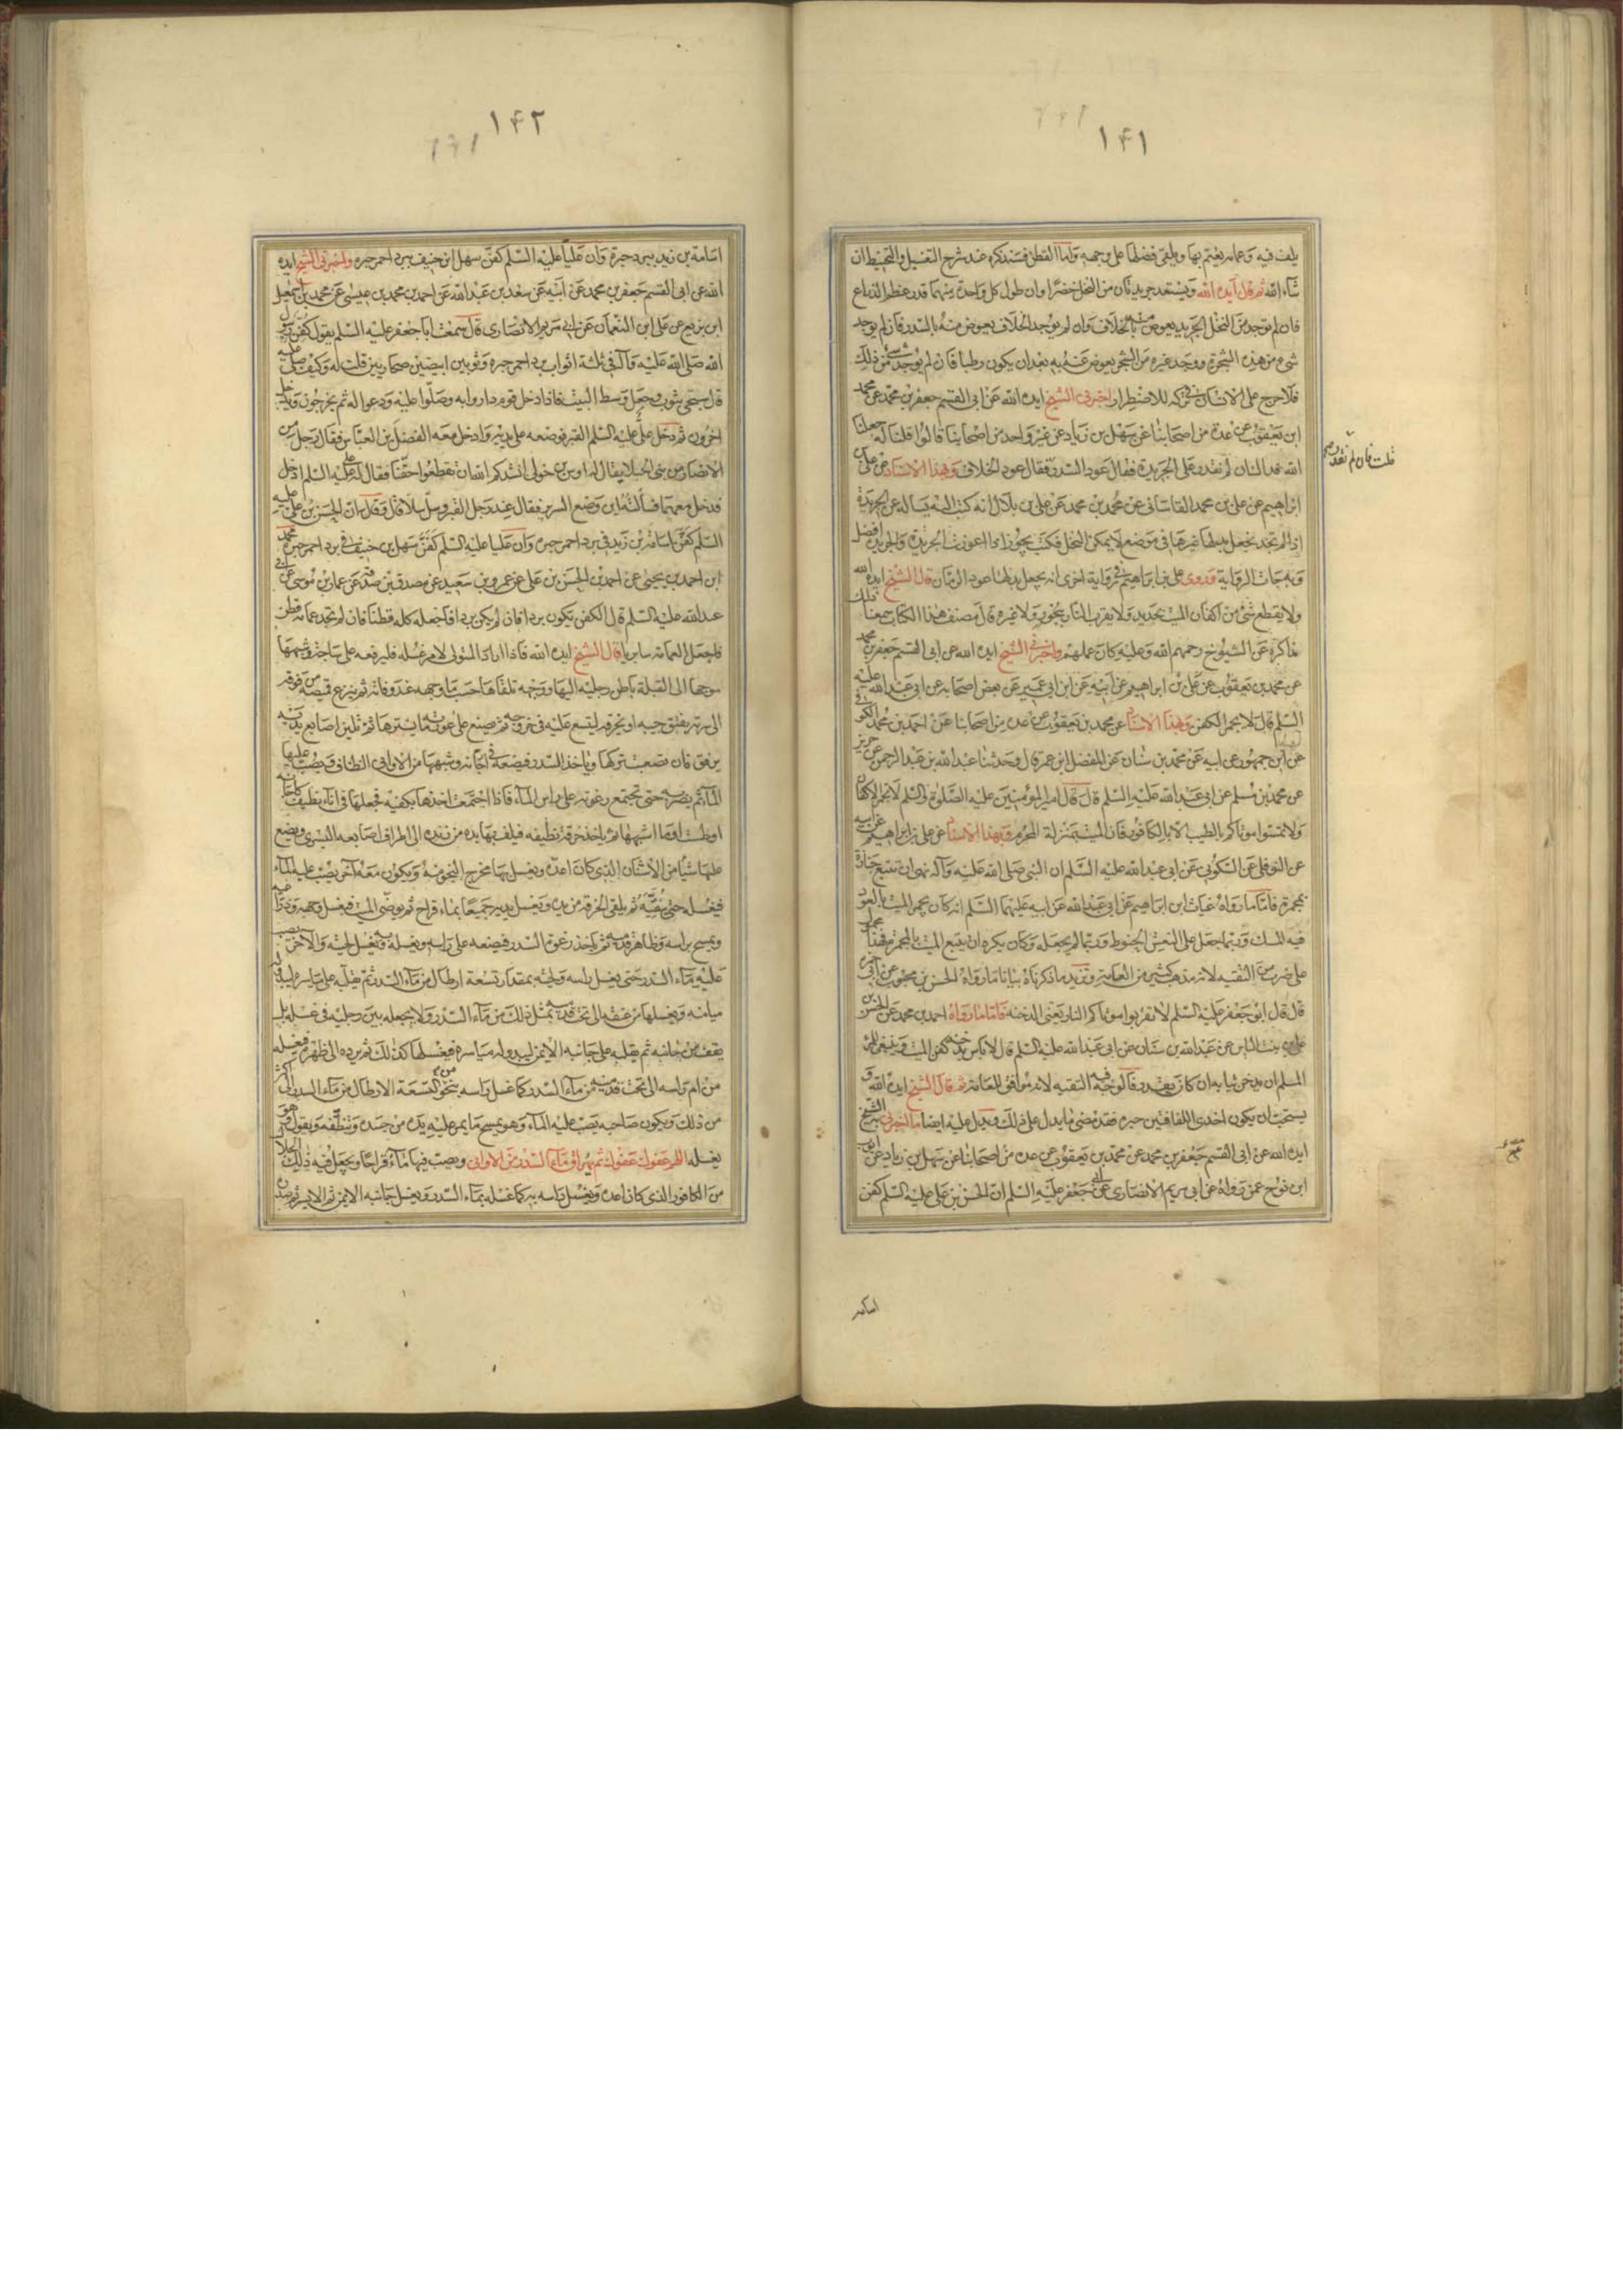 ١٤١
يلف فيه وعمامه يعتم بها ويلقى فضلها على وجهه واما القطن فسنذكره عند شرح التغسيل والتحنيط ان
شاء الله ثم قال ايده الله ويستعد جريدتان من النخل خضرا وان طول كل واحدة منهما قدر عظم الذراع
فان لم توجد من النخل الجريد يعوض منه بالخلاف وان لم يوجد الخلاف يعوض منه بالسدر فان لم يوجد
شئ من هذه الشجرة ووجد غيره من الشجر يعوض عنه به بعد ان يكون رطبا فان لم يوجد شئ من ذلك
فلا حرج على الانسان في تركه للاضطرار اخبرنى الشيخ ايده الله عن ابى القسم جعفر بن محمد عن محمد
ابن يعقوب عن عدة من اصحابنا عن سهل بن زياد عن غير واحد من اصحابنا قالوا قلنا له جعلنا
الله فداك ان لم نقدر على الجريدة فقال عود السدر فقال عود الخلاف وبهذا الاسناد عن على
ابن ابراهيم عن على بن محمد القاسانى عن محمد بن محمد عن على بن بلال انه كتب اليه يساله عن الجريدة
اذا لم تجد نجعل بدلها غيرها فى موضع لا يمكن النخل فكتب يجوز اذا اعوزت الجريدة والجريدة افضل
وبه جات الرواية وروى على بن ابراهيم فى رواية اخرى انه يجعل بدلها عود الرمان قال الشيخ ايده الله
ولا يقطع شئ من اكفان الميت بحديد ولا يقرب النار ببخور ولا غيره قال مصنف هذا الكتاب سمعنا ذلك
مذاكرة عن الشيوخ رحمهم الله وعليه كان عملهم واخبرنى الشيخ ايده الله عن ابى القسم جعفر بن محمد
عن محمد بن يعقوب عن على بن ابراهيم عن ابيه عن ابن ابى عمير عن بعض اصحابه عن ابى عبد الله عليه
السلم قال لا يجمر الكفن وبهذا الاسناد عن محمد بن يعقوب عن عدة من اصحابنا عن احمد بن محمد الكوفى
عن ابن جمهور عن ابيه عن محمد بن سنان عن المفضل ابن عمر قال وحدثنا عبد الله بن عبد الرحمن عن حريز
عن محمد بن مسلم عن ابى عبد الله عليه السلم قال قال امير المومنين عليه الصلوة والسلم لا تجمروا الاكفان
ولا تمسوا موتاكم بالطيب الا بالكافور فان الميت بمنزلة المحرم وبهذا الاسناد عن على بن ابراهيم عن ابيه
عن النوفلى عن السكونى عن ابى عبد الله عليه السلم ان النبى صلى الله عليه وآله نهى ان تتبع جنازة
بمجمرة فاما ما رواه غياث ابن ابراهيم عن ابى عبد الله عن ابيه عليهما السلم انه كان يجمر الميت بالعود
فيه المسك وربما جعل على النعش الحنوط وربما لم يجعله وكان يكره ان يتبع الميت بالمجمرة فهذا محمول
على ضرب من التقيه لانه مذهب كثير من العامة ونزيد ما ذكرناه بيانا ما رواه الحسن بن محبوب عن ابى حمزة
قال قال ابو جعفر عليه السلم لا تقربوا موتاكم النار يعنى الدخنه فاما ما رواه احمد بن محمد عن الحسن بن
على بن بنت الياس عن عبد الله بن سنان عن ابى عبد الله عليه السلم قال لا باس بدخنه كفن الميت وينبغى للمرء
المسلم ان يدخن ثيابه ان كان يقدر فالوجه فيه التقيه لانه موافق للعامة ثم قال الشيخ ايده الله و
يستحب ان يكون احدى اللفافتين حبره فقد مضى ما يدل على ذلك ويدل عليه ايضا ما اخبرنى به الشيخ
ايده الله عن ابى القسم جعفر بن محمد عن محمد بن يعقوب عن عده من اصحابنا عن سهل بن زياد عن ايوب
ابن نوح عمن رواه عن ابى مريم الانصارى عن ابى جعفر عليه السلم ان الحسن بن على عليه السلم كفن
قلت فان لم نقدر
١٤٢
اسامة بن زيد ببرد حبرة وان عليا عليه السلم كفن سهل ابن حنيف ببرد احمر حبره واخبرنى الشيخ ايده
الله عن ابى القسم جعفر بن محمد عن ابيه عن سعد بن عبد الله عن احمد بن محمد بن عيسى عن محمد بن اسمعيل
ابن بزيع عن على ابن النعمان عن ابى مريم الانصارى قال سمعت ابا جعفر عليه السلم يقول كفن رسول
الله صلى الله عليه وآله فى ثلثة اثواب برد احمر حبره وثوبين ابيضين صحاريين قلت له وكيف صلى عليه
قال سجى بثوب وجعل وسط البيت فاذا دخل قوم داروا به وصلوا عليه ودعوا له ثم يخرجون ويدخل
اخرون ثم دخل على عليه السلم القبر فوضعه على يديه وادخل معه الفضل بن العباس فقال رجل من
الانصار من بنى الخيلا يقال له اوس بن خولى انشدكم الله ان تقطعوا حقنا فقال له على عليه السلم ادخل
فدخل معهما فسالته اين وضع السرير فقال عند رجل القبر وسل سلا قال وقال ان الحسن بن على عليه
السلم كفن اسامة بن زيد فى برد احمر حبره وان عليا عليه السلم كفن سهل بن حنيف فى برد احمر حبره محمد
ابن احمد بن يحيى عن احمد بن الحسن بن على عن عمرو بن سعيد عن مصدق بن صدقه عن عمار بن موسى عن ابى
عبد الله عليه السلم قال الكفن يكون بردا فان لم يكن بردا فاجعله كله قطنا فان لم تجد عمامه قطن
فاجعل العمامه سابريا قال الشيخ ايده الله فاذا اراد المتولى لامر غسله فليرفعه على ساجة وشبهها
موجها الى القبلة باطن رجليه اليها ووجهه تلقاها حسب ما وجهه عند وفاته ثم ينزع قميصه من فوقه
الى سرته يفتق جيبه او يخرقه ليتسع عليه فى خروجه ثم يضع على عورته ما يسترها ثم تلين اصابع يديه
برفق فان تصعبت تركها وياخذ السدر فيضعه فى اجانه وشبهها من الاوانى النظاف ويصب عليها
الماء ثم يضربه حتى تجتمع رغوته على راس الماء فاذا اجتمعت اخذها بكفيه فجعلها فى اناء نظيف كاجانه
اوطست او ما اشبهها ثم ياخذ خرقة نظيفه فيلف بها يده من زنده الى اطراف اصابعه اليسرى ويضع
عليها شيا من الاشنان الذى كان اعده ويغسل بها مخرج النجو منه ويكون معه آخر يصب عليه الماء
فيغسله حتى ينقيه ثم يلقى الخرقه من يده ويغسل يديه جميعا بماء قراح ثم يوضى الميت فيغسل وجهه وذراعيه
ويمسح براسه وظاهر قدميه ثم ياخذ رغوة السدر فيضعه على راسه ويغسله به ويغسل لحيته والآخر يصب
عليه ماء السدر حتى يغسل راسه ولحيته بمقدار تسعة ارطال من ماء السدر ثم يقلبه على مياسره ليبدو له
ميامنه ويغسلها من عنقه الى تحت قدميه بمثل ذلك من ماء السدر ولا يجعله بين رجليه فى غسله بل
يقف من جانبه ثم يقلبه على جانبه الايمن ليبدو له مياسره فيغسلها كذلك ثم يرده الى ظهره فيغسله
من ام راسه الى تحت قدميه من ماء السدر كما غسل راسه بنحو التسعة الارطال من ماء السدر الى اكثر
من ذلك ويكون صاحبه يصب عليه الماء وهو يمسح ما يمر عليه يده من جسده وتنظفه ويقول وهو
يغسله اللهم عفوك عفوك ثم يهراق ماء السدر من الاوانى ويصب فيها ماء قراحا ويجعل فيه ذلك الجلال
من الكافور الذى كان اعده ويغسل راسه به كما غسله بماء السدر ويغسل جانبه الايمن ثم الايسر ثم صدره